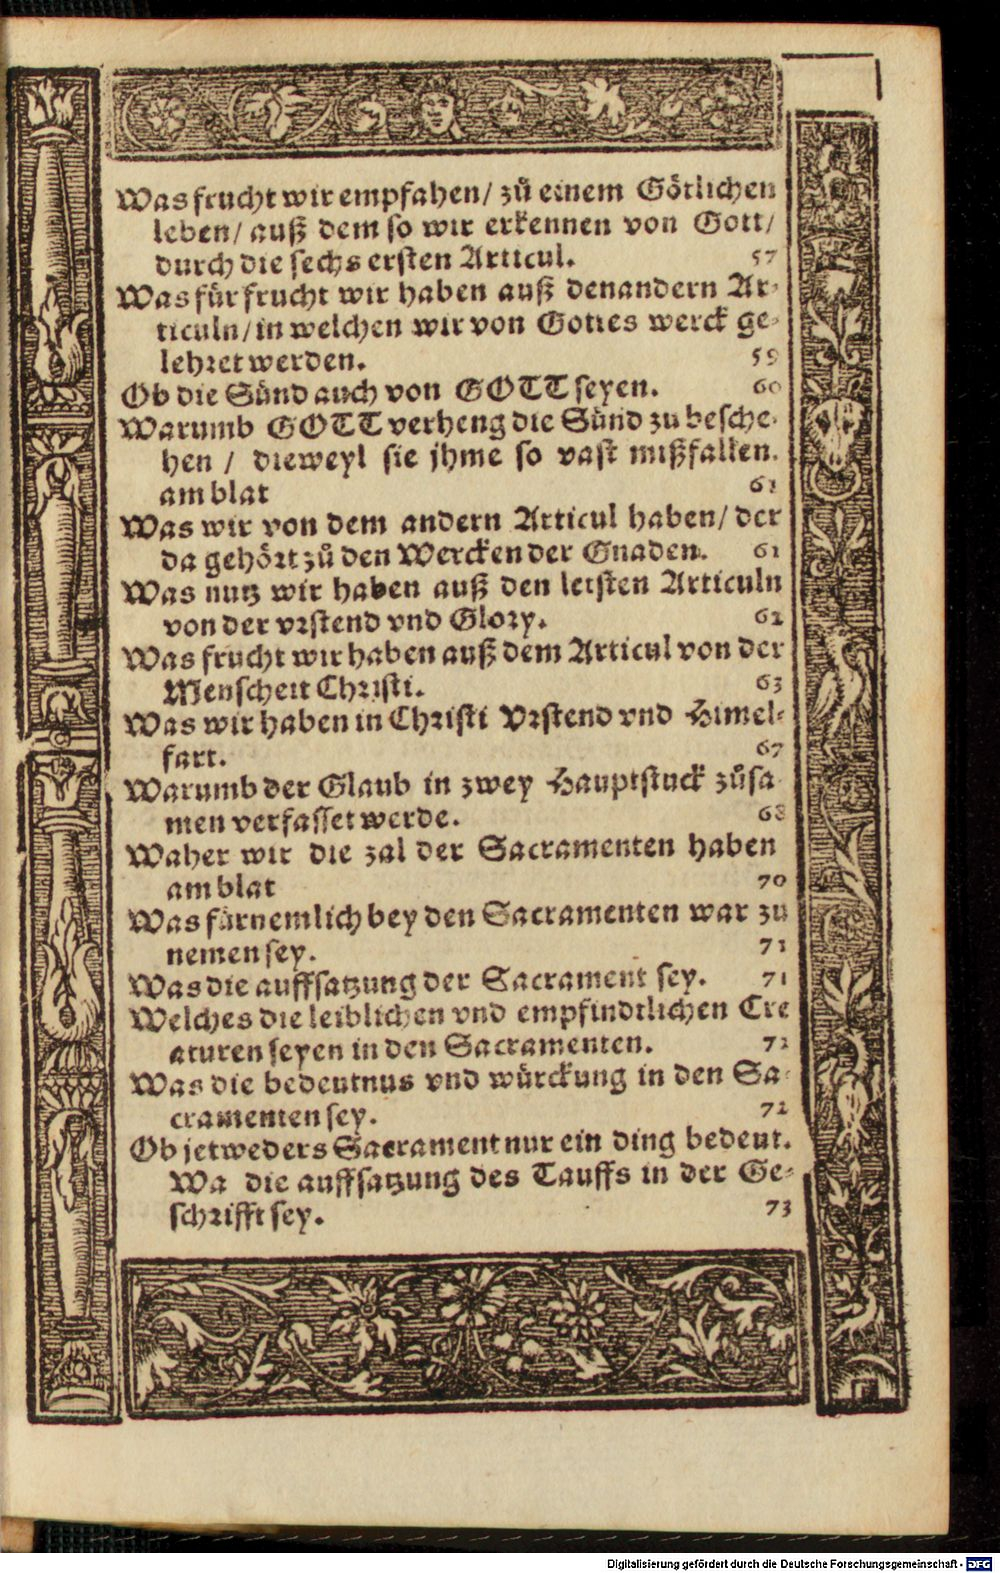 Was frucht wir empfahen/ zů einem Götlichen
leben/ auß dem so wir erkennen von Gott/
durch die sechs ersten Articul. 57
Was für frucht wir haben auß den andern Ar-
ticuln/ in welchen wir von Gottes werck ge-
lehret werden. 59
Ob die Sünd auch von GOTT seyen. 60
Warumb GOTT verheng die Sünd zu besche-
hen / dieweyl sie jhme so vast mißfallen.
am blat 61
Was wir von dem andern Articul haben/ der
da gehört zů den Wercken der Gnaden. 61
Was nutz wir haben auß den letsten Articuln
von der vrstend vnd Glory. 62
Was frucht wir haben auß dem Articul von der
Menscheit Christi. 63
Was wir haben in Christi Vrstend vnd Himel-
fart. 67
Warumb der Glaub in zwey Hauptstuck zůsa-
men verfasset werde. 68
Waher wir die zal der Sacramenten haben
am blat 70
Was fürnemlich bey den Sacramenten war zu
nemen sey. 71
Was die auffsatzung der Sacrament sey. 71
Welches die leiblichen vnd empfindtlichen Cre
aturen seyen in den Sacramenten. 72
Was die bedeutnus vnd würckung in den Sa-
cramenten sey. 72
Ob jetweders Sacrament nur ein ding bedeut.
Wa die auffsatzung des Tauffs in der Ge-
schrifft sey. 73
Digitalisierung gefördert durch die Deutsche Forschungsgemeinschaft - DFG